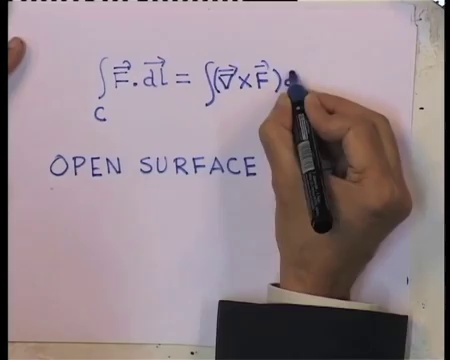 ∫ F⃗ . dl⃗ = ∫(∇⃗ × F⃗)
C
OPEN SURFACE